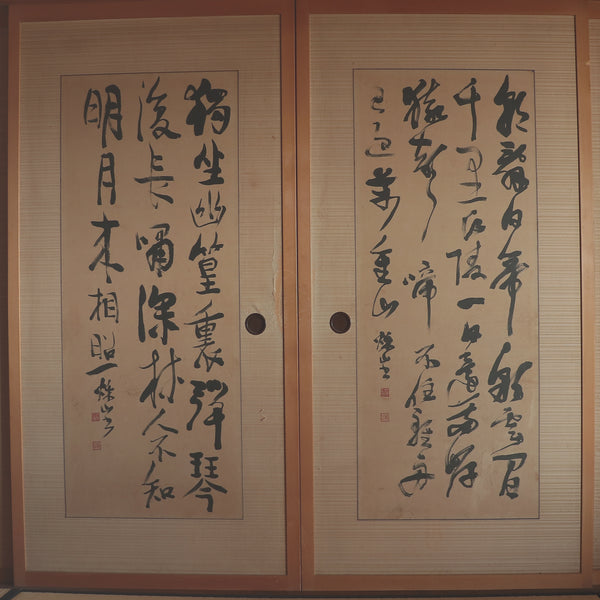 朝辭白帝彩雲間
千里江陵一日還両岸
猿聲啼不住軽舟
已過萬重山
獨坐幽篁裏弾琴
復長嘯深林人不知
明月来相照